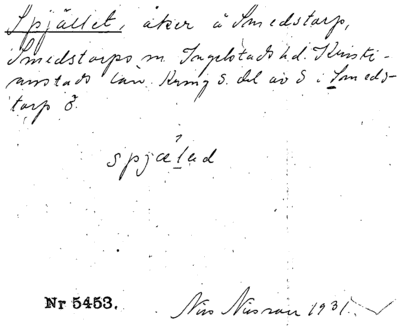 Spjället, åker å Smedstorp,
Smedstorps sn Ingelstads hd. Kristi-
anstads län. Kring S. del av S i Smeds-
torp 8.
spjæləd
Nr 5453.
Nils Nilsson 1931.